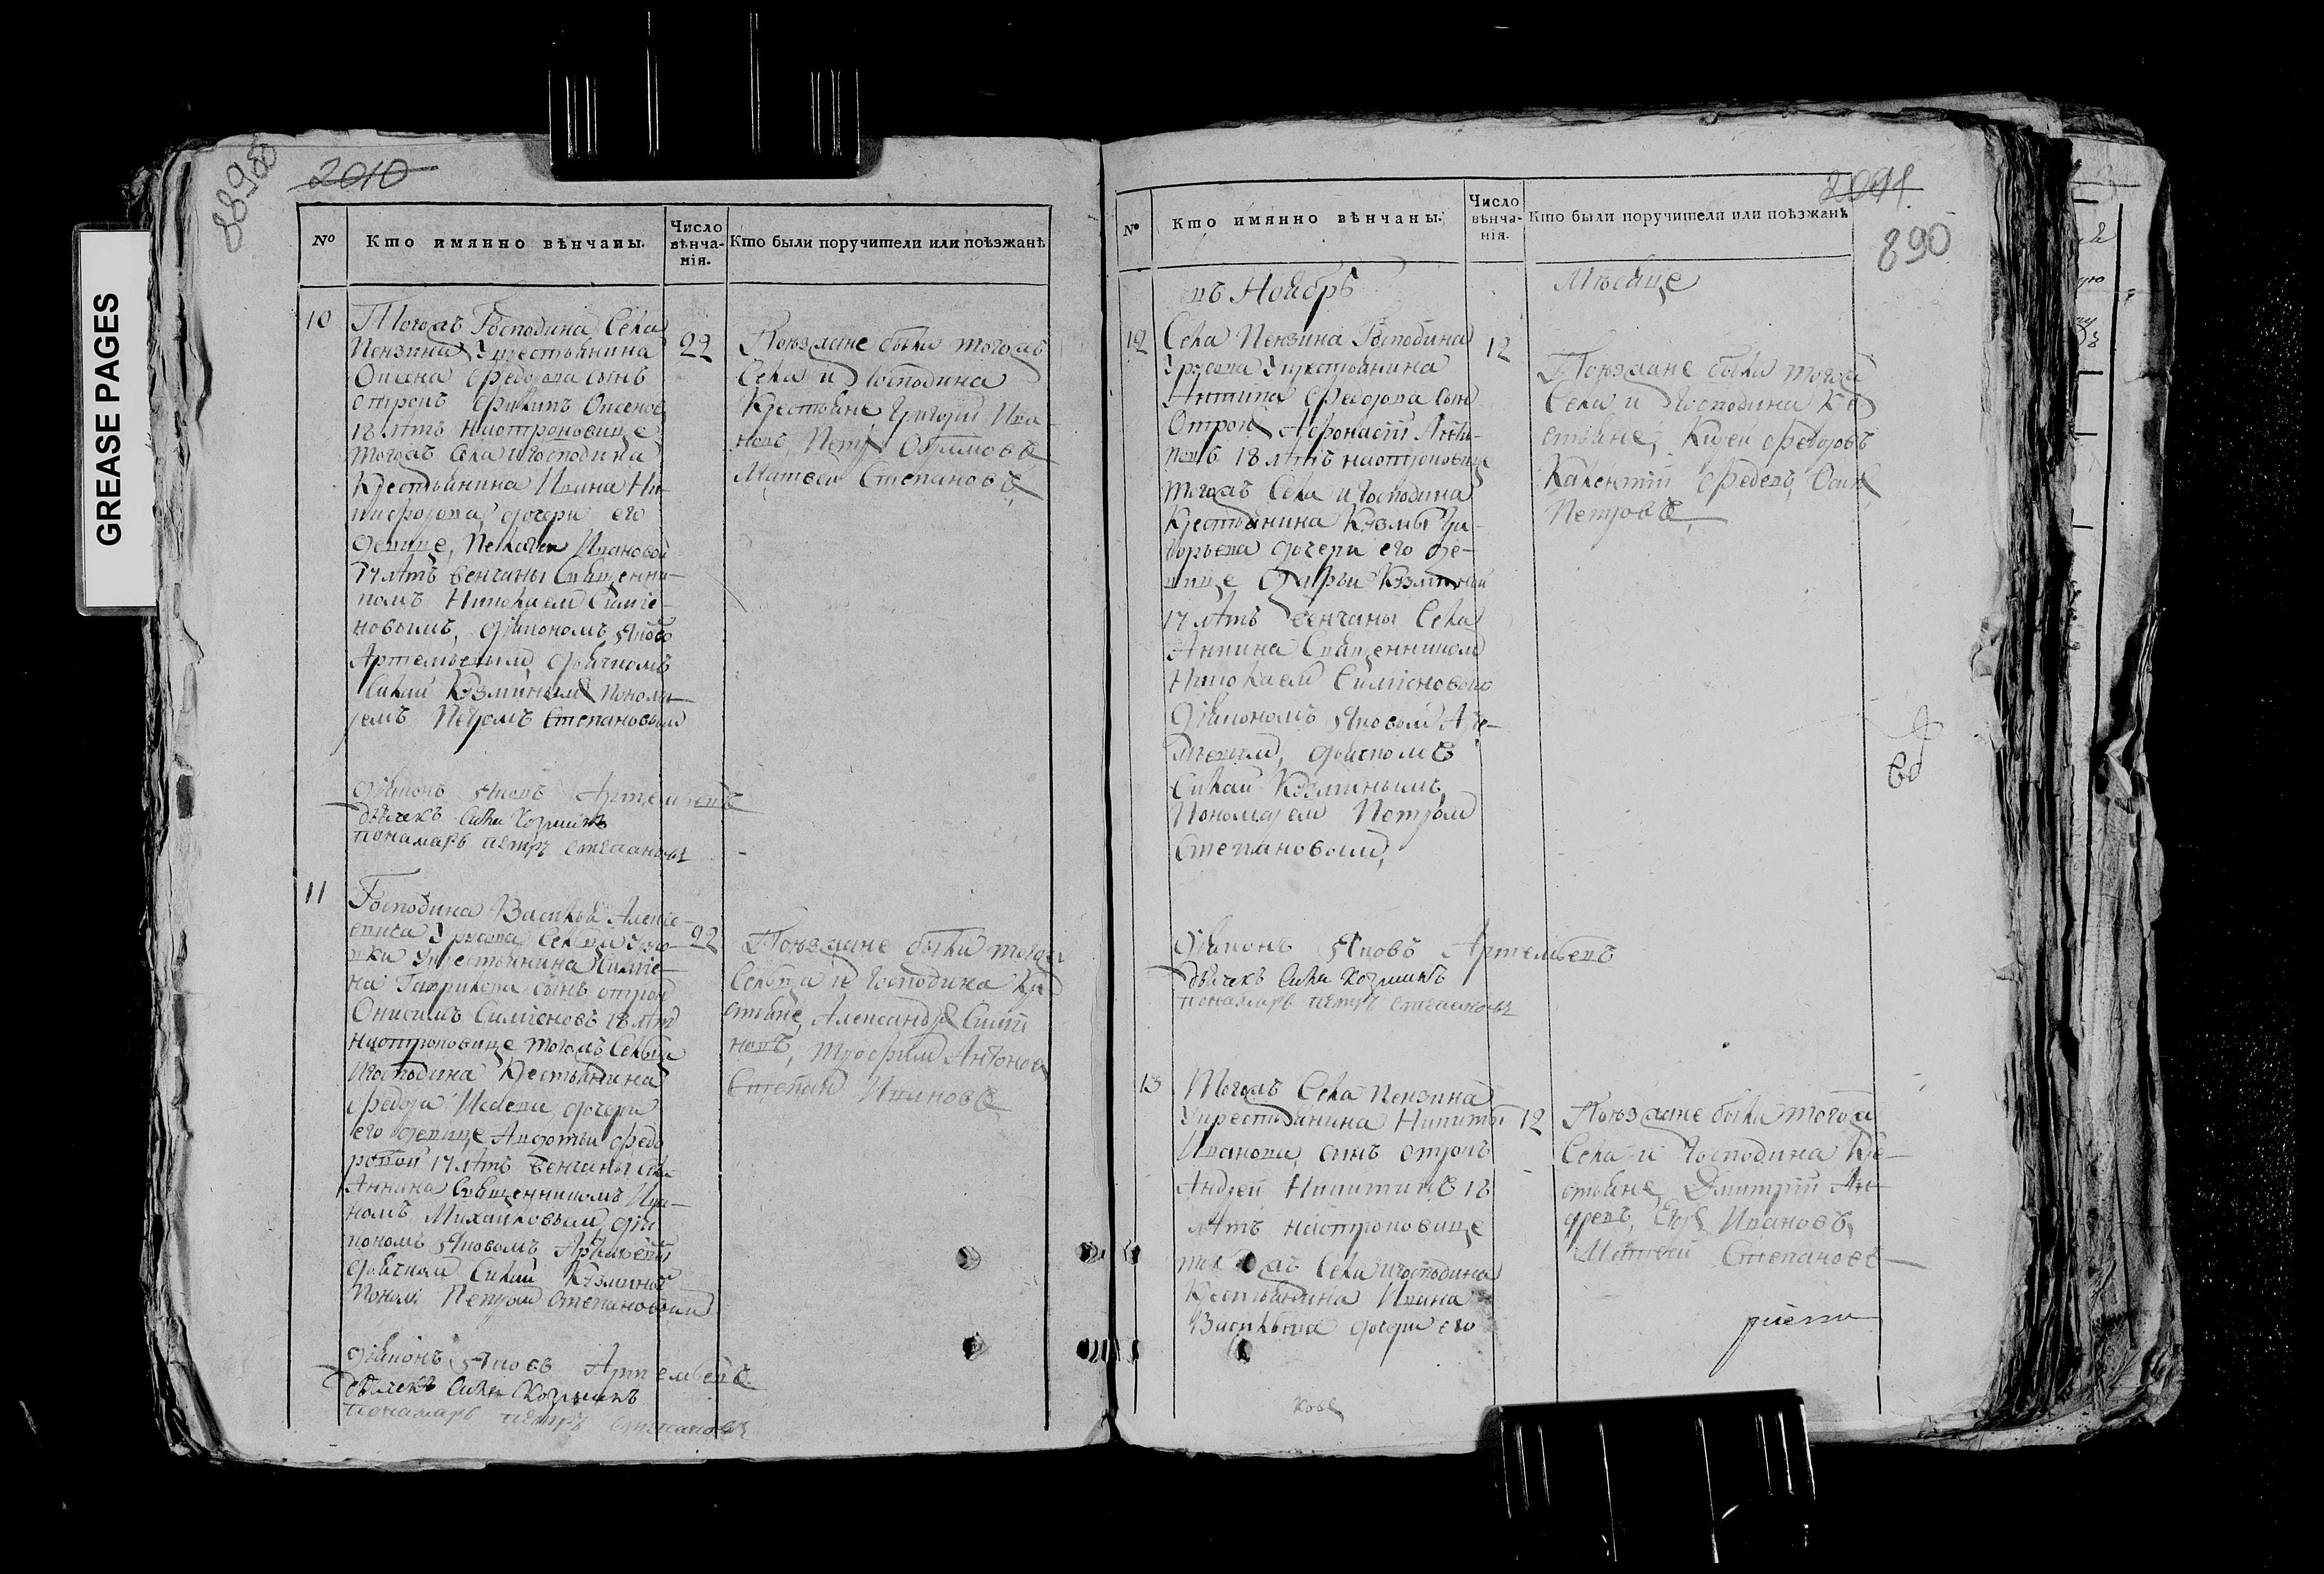 GREASE PAGES
2010
№
Кто имянно вѣнчаны.
Число
вѣнча-
нія.
Кто были поручители или поѣзжанѣ
10
Тогожъ Господина Села
Пензина Укрестьянина
Федорова сынъ
отрокъ Филипъ
18 лѣтъ наотроковице
тогожъ села игосподина
крестьянина Ивана Ни-
кифорова дочери его
девице, Пелагеи Ивановой
17 лѣтъ венчаны Священни-
комъ Николаемъ Симіо-
новымъ, діякономъ Яково
Артемьевымъ дьячкомъ
Силай Козминымъ понома-
ремъ Петромъ Степановым
22
Поюзжане были тогожъ
Села и Господина
Крестьяне Григорій Ива-
новъ, Петръ
Матвей Степановъ
Діяконъ Яковъ Артемьевъ
дьячекъ Сила Козминъ
понамарь петръ степановъ
11
Господина Василья Алексе-
евича Урусова Сельца
Укрестьянина Симіо-
на Гаврилова сынъ отрок
Онисимъ Симіоновъ 18 лѣт
наотроковице тогожъ Сельца
Игосподина Крестьянина
Федора дочери
его девице Авдотьи Федо
ровой 17 лѣтъ венчаны села
Аннина Священникомъ Ива-
номъ Михайловым дія
кономъ Яковомъ Артемьевы
дьячком Силай Козминым
Поном Петром Степановыим
22
Поюзжане были тогож
Сельца и Господина Кре
стьяне, Александръ Симіо
новъ, Трофим Антонов
Степан Ивановъ
Діяконъ Яковъ Артемьевъ
дьячекъ Сила Козминъ
понамарь петръ степановъ
890
№
Кто имянно вѣнчаны.
Число
вѣнча-
нія.
Кто были поручители или поѣзжанѣ
въ Ноябрѣ
Мѣсяце
12
Села Пензина Господина
Урусова Укрестьянина
Антипа Федорова сын
Отрок Афонасій Анти-
повъ 18 лѣтъ наотроковице
тогожъ Села игосподина
Крестьянина Козмы Гри-
горьева дочери его де-
вице Дарьи Козминой
17 лѣтъ венчаны Села
Аннина Священником
Николаем Симіоновым
Діякономъ Яковым Арте-
мьевым, дьячкомъ
Силай Козминымъ
Пономарем Петром
Степановым,
12
Поюзжане были тогож
Села и Господина Кре
стьяне, Федоровъ
Петровъ
Діяконъ Яковъ Артемьевъ
дьячекъ Сила Козминъ
понамарь петръ степановъ
13
Тогожъ Села Пензина
Укрестьянина Никиты
Иванова сынъ отрокъ
Андрей Никитинъ 18
лѣтъ наотроковице
тогожъ Села игосподина
Крестьянина Ивана
Васильева дочери его
12
Поюзжане были тогож
Села и Господина Кре-
стьяне, Дмитрій Ан-
дреевъ, Ивановъ,
Матвей Степановъ